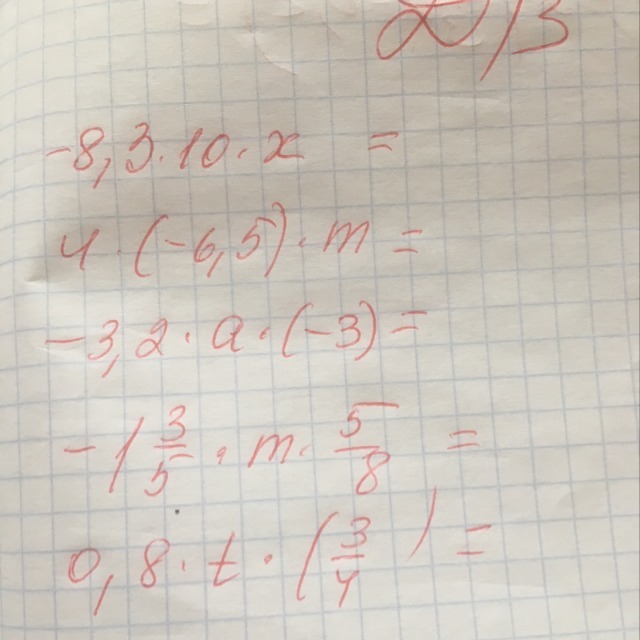 Д/З
-8,3·10·x =
4·(-6,5)·m=
-3,2·a·(-3)=
-1 3/5 · m · 5/8 =
0,8·t·(3/4)=